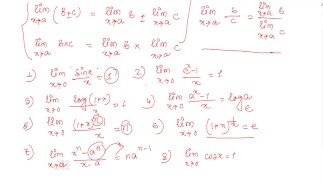 lim x→a (B±C) = lim x→a B ± lim x→a C
lim x→a B/C = lim x→a B / lim x→a C
lim x→a B×C = lim x→a B × lim x→a C
1) lim x→0 sinx/x = 1 2) lim x→0 e^x-1/x = 1
3) lim x→0 log(1+x)/x = 1 4) lim x→0 a^x-1/x = log a e
5) lim x→0 (1+x)^n/x = n 6) lim x→0 (1+x)^1/x = e
7) lim x→a x^n - a^n / x-a = na^n-1 8) lim x→0 cosx = 1